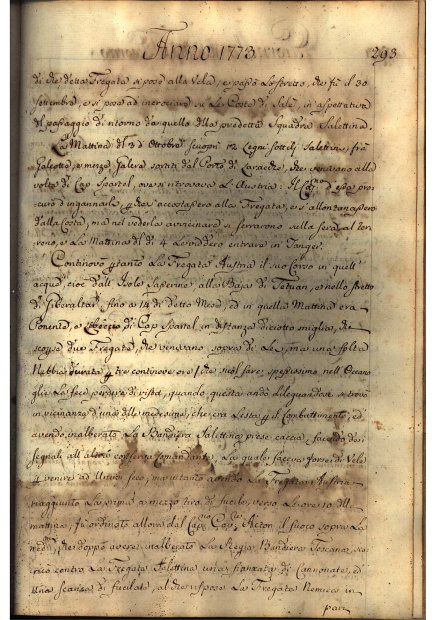 Anno 1773
293
di che detta Fregata si pose alla Vela, e passò lo stretto, che fu il 30
Settembre, e si pose ad incrociare su le Coste di Salè, in aspettativa
del passaggio di ritorno da quello della predetta Squadra Salettina.
La Mattina dì 3 d' Ottobre scuoprì 12 Legni sottili Salettini frà
Galeotte, e mezze Galere sortiti dal Porto di Larache, che venivano alla
volta di Cap Spartel, ove si ritrovava L' Austria: Il Cap.no d' essa pro-
curò d' ingannarli, che s' accostassero alla Fregata, e si allontanassero
dalla Costa, ma nel vederla avvicinare si serrarono sulla sera al ter-
reno, e La Mattina dì 4 Le viddero entrare in Tanger.
Continovò La Fregata Austria il suo Corso in quell'
acque, cioè dall' Isole Saferine alla Baja di Tetuan, e nello stretto
di Gibilterra fino a 14 di detto Mese, ed in quella Mattina era
Ponente, e di Cap Spartel in distanza diciotto miglia, che
scoprì due Fregate, che venivano sopra di Lei, ma una folta
Nebbia durata tre continove ore, che suol fare spessissimo nell' Oceano
glie La fece perdere di vista, quando, questa andò dileguandosi si trovò
in vicinanza d' una delle medesime, che era Lesta p. il Combattimento, ed
avendo inalberato La Bandiera Salettina prese caccia, facendo dei
segnali all' altra conserva Comandante, La quale faceva forza di Vele
p venire ad unirsi seco, ma intanto avendo La Fregata Austria
raggiunto La prima a mezzo tiro di fucile, verso Le ore 10 di
mattina, fu ordinato allora dal Cap.no Acton il fuoco sopra La
med.ma, che doppo avere inalberato La Regia Bandiera Toscana, sca-
ricò contro La Fregata Salettina una fiancata di Cannonate, ed
una scarica di fucilate, al che rispose La Fregata Nemica in
pari